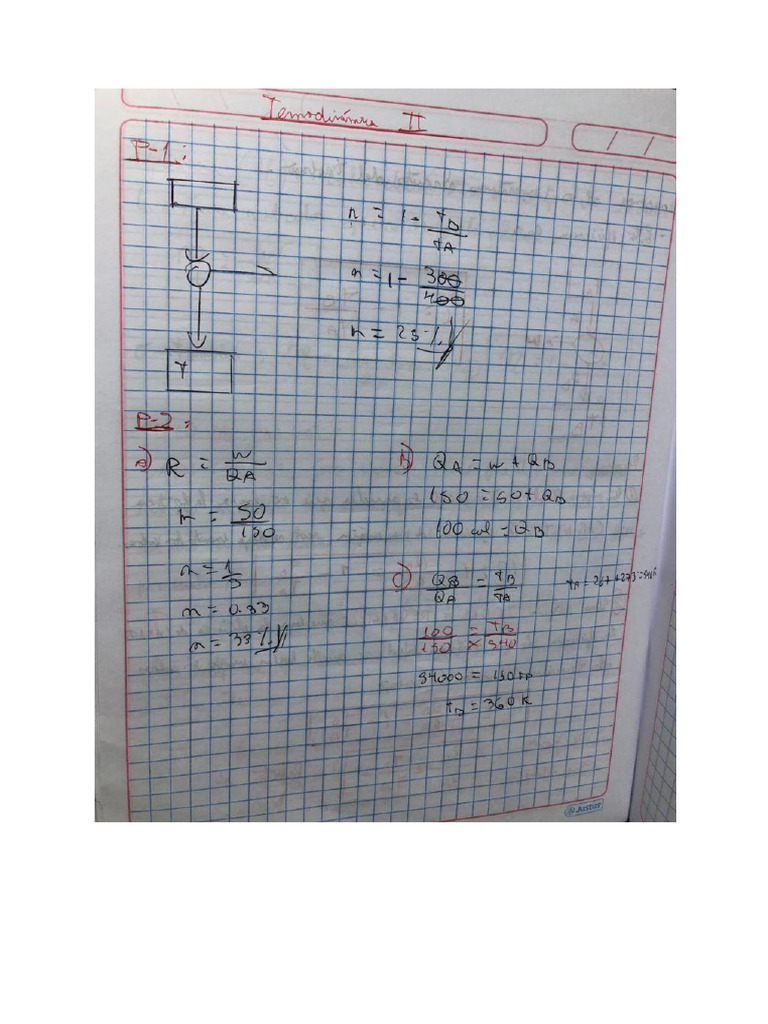 Temodinámica II
/ /
P-1:
n = 1 - TB/TA
n = 1 - 300/400
n = 25%
T
P-2:
a) R = W/QA
n = 50/150
n = 1/3
n = 0.33
n = 33%
b) QA = W + QB
150 = 50 + QB
100 = QB
c) QB/QA = TB/TA
100/150 = TB/540
54000 = 150 TB
TB = 360 K
Justus